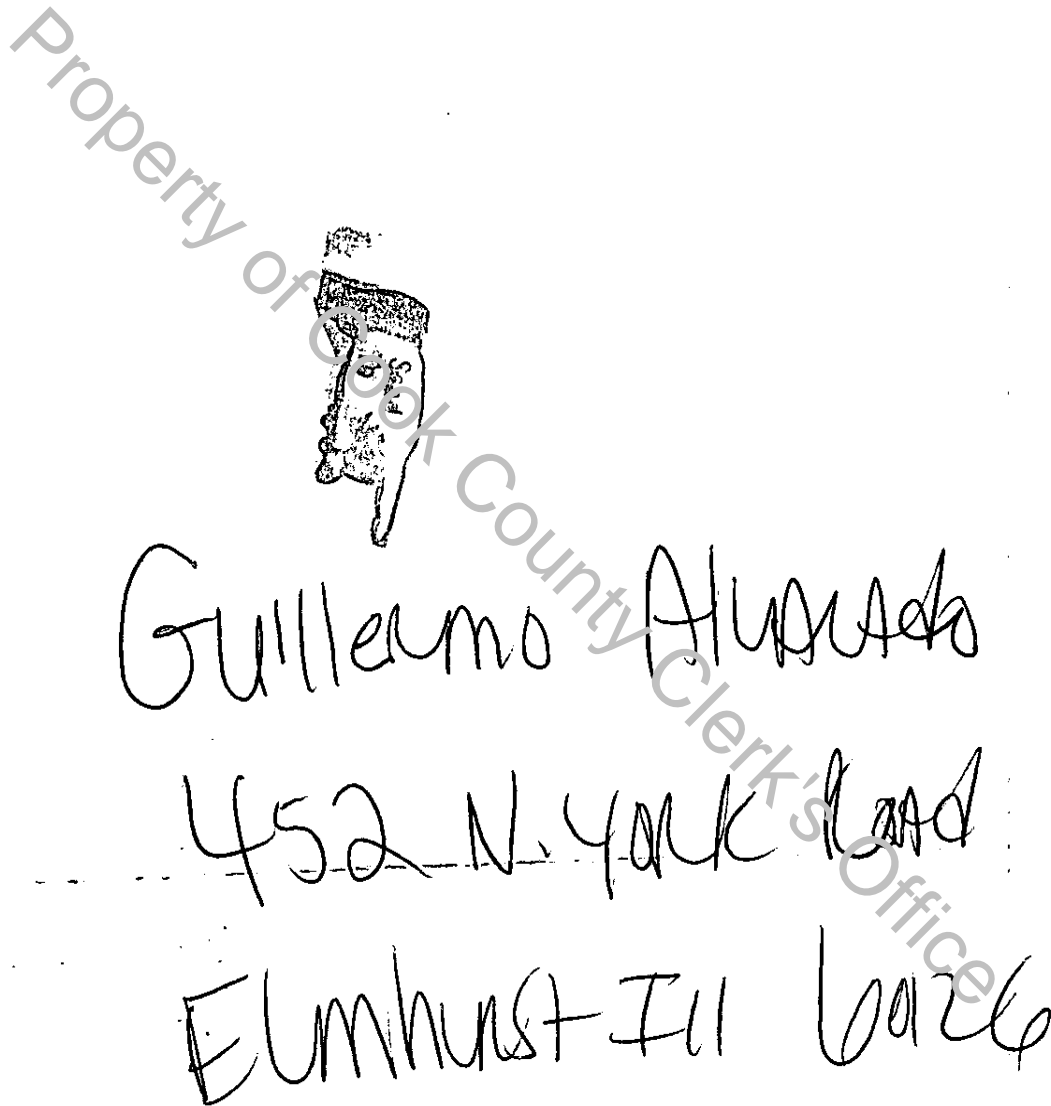 Property of Cook County Clerk's Office
Guillermo Alvarado
452 N. York Road
Elmhurst Ill 60126